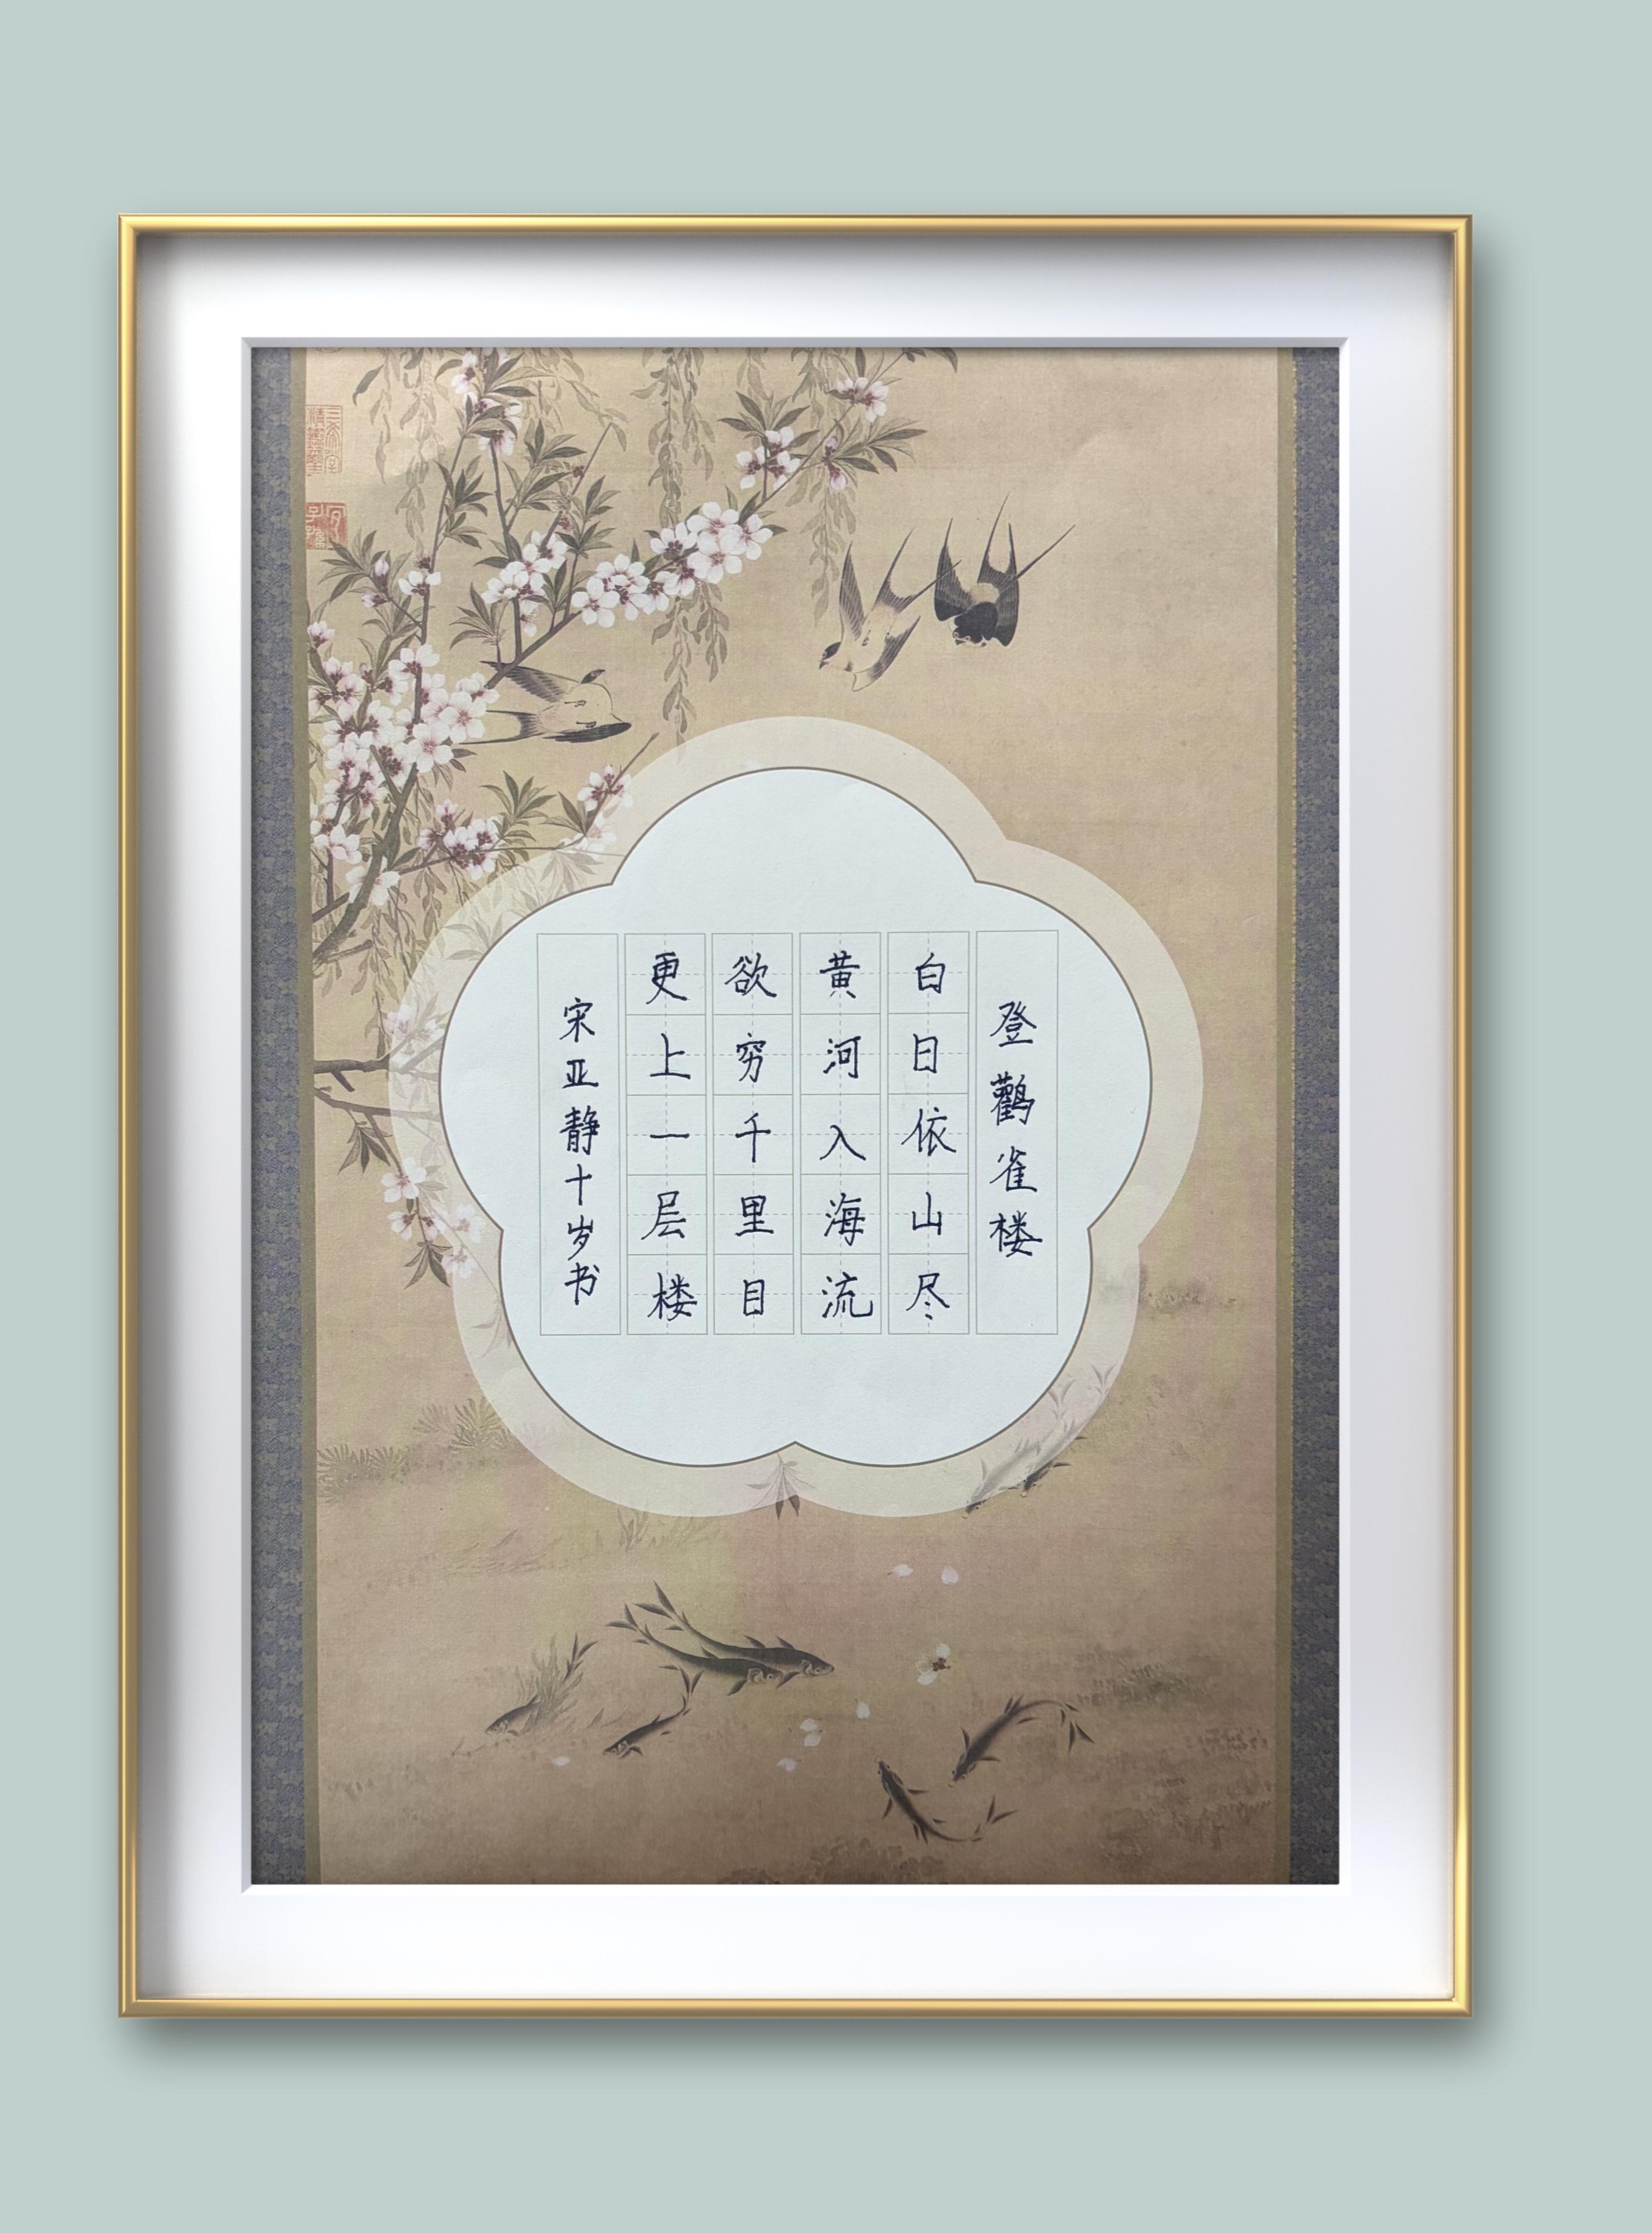 登鸛雀楼
白日依山尽
黄河入海流
欲穷千里目
更上一层楼
宋亚静十岁书